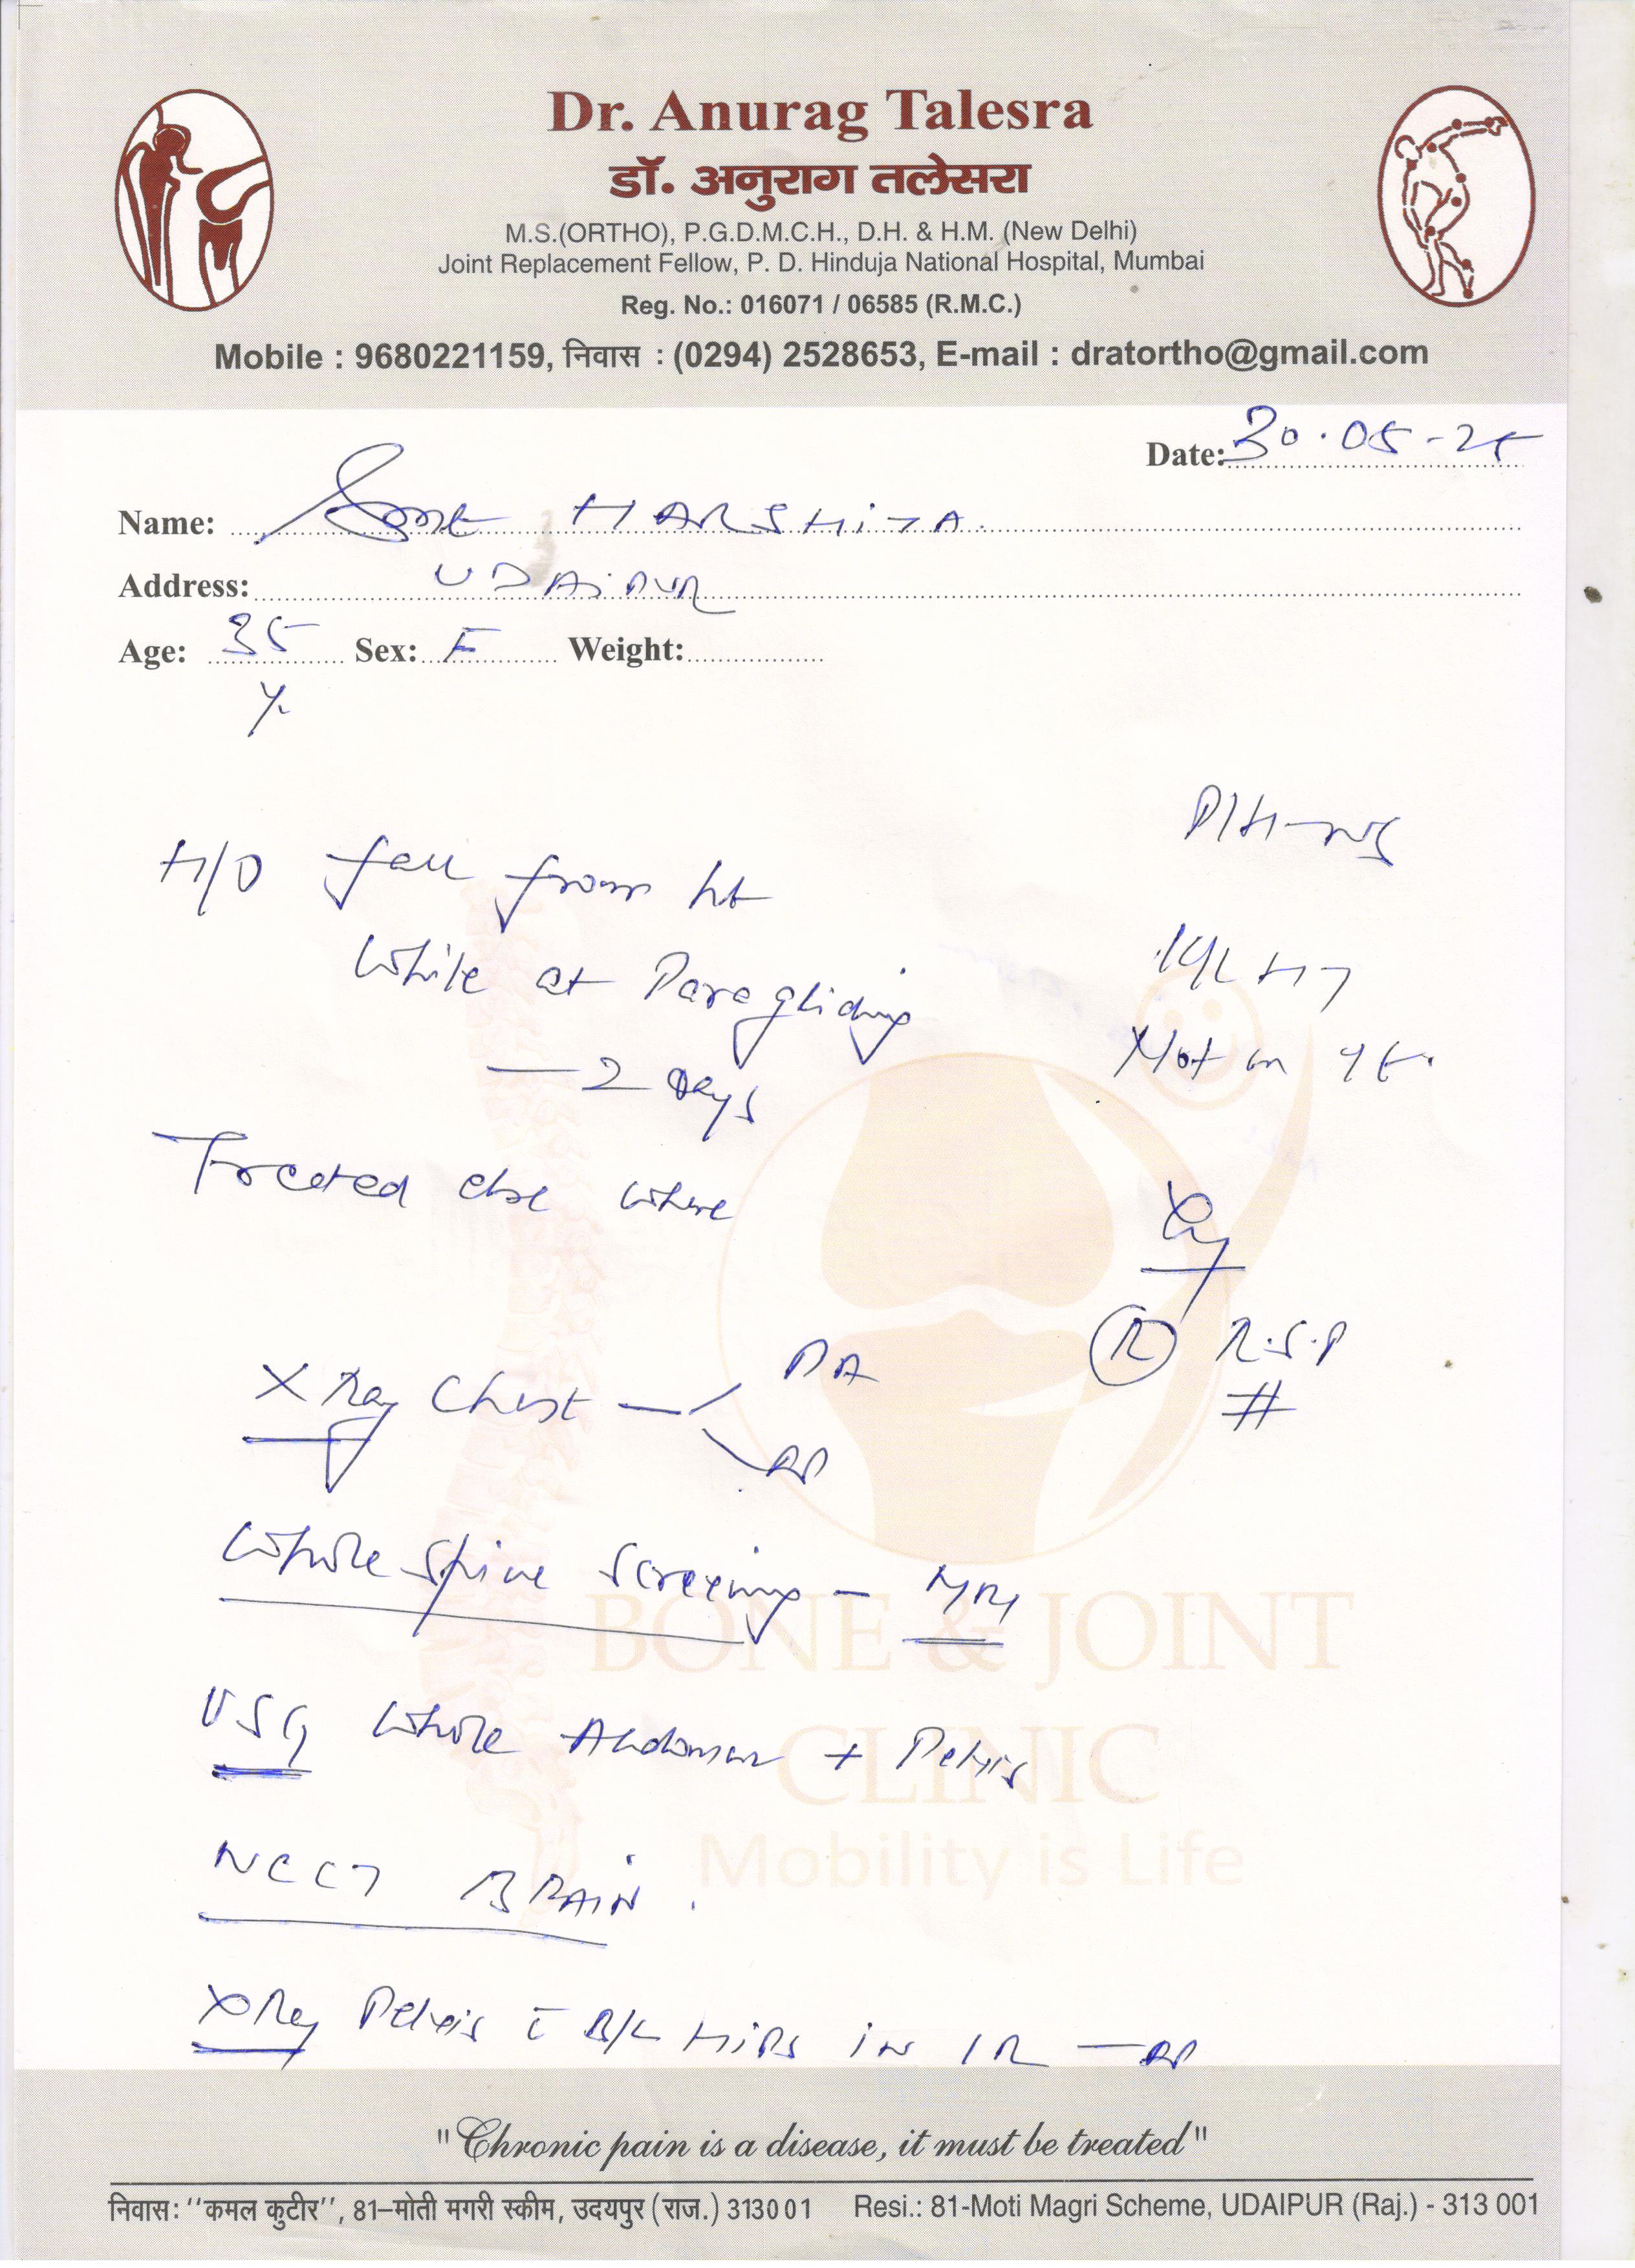 Dr. Anurag Talesra
डॉ. अनुराग तलेसरा
M.S.(ORTHO), P.G.D.M.C.H., D.H. & H.M. (New Delhi)
Joint Replacement Fellow, P. D. Hinduja National Hospital, Mumbai
Reg. No.: 016071 / 06585 (R.M.C.)
Mobile : 9680221159, निवास : (0294) 2528653, E-mail : dratortho@gmail.com
Date: 30.05-25
Name: HARSHITA
Address: UDAIPUR
Age: 35 Sex: F Weight:
Y.
P/H-NS
H/O fall from ht
While at Paragliding
- 2 Days
K/C HT
Not on
Treated else where
Xray
R R.S.P
#
X Ray Chest - PA
AP
Whole Spine Screening - MRI
USG Whole Abdomen + Pelvis
NCCT BRAIN.
XRay Pelvis c̄ B/L HIPS IN IR - AP
BONE & JOINT
CLINIC
Mobility is Life
"Chronic pain is a disease, it must be treated"
निवास: ‘‘कमल कुटीर’’, 81–मोती मगरी स्कीम, उदयपुर (राज.) 313001 Resi.: 81-Moti Magri Scheme, UDAIPUR (Raj.) - 313 001